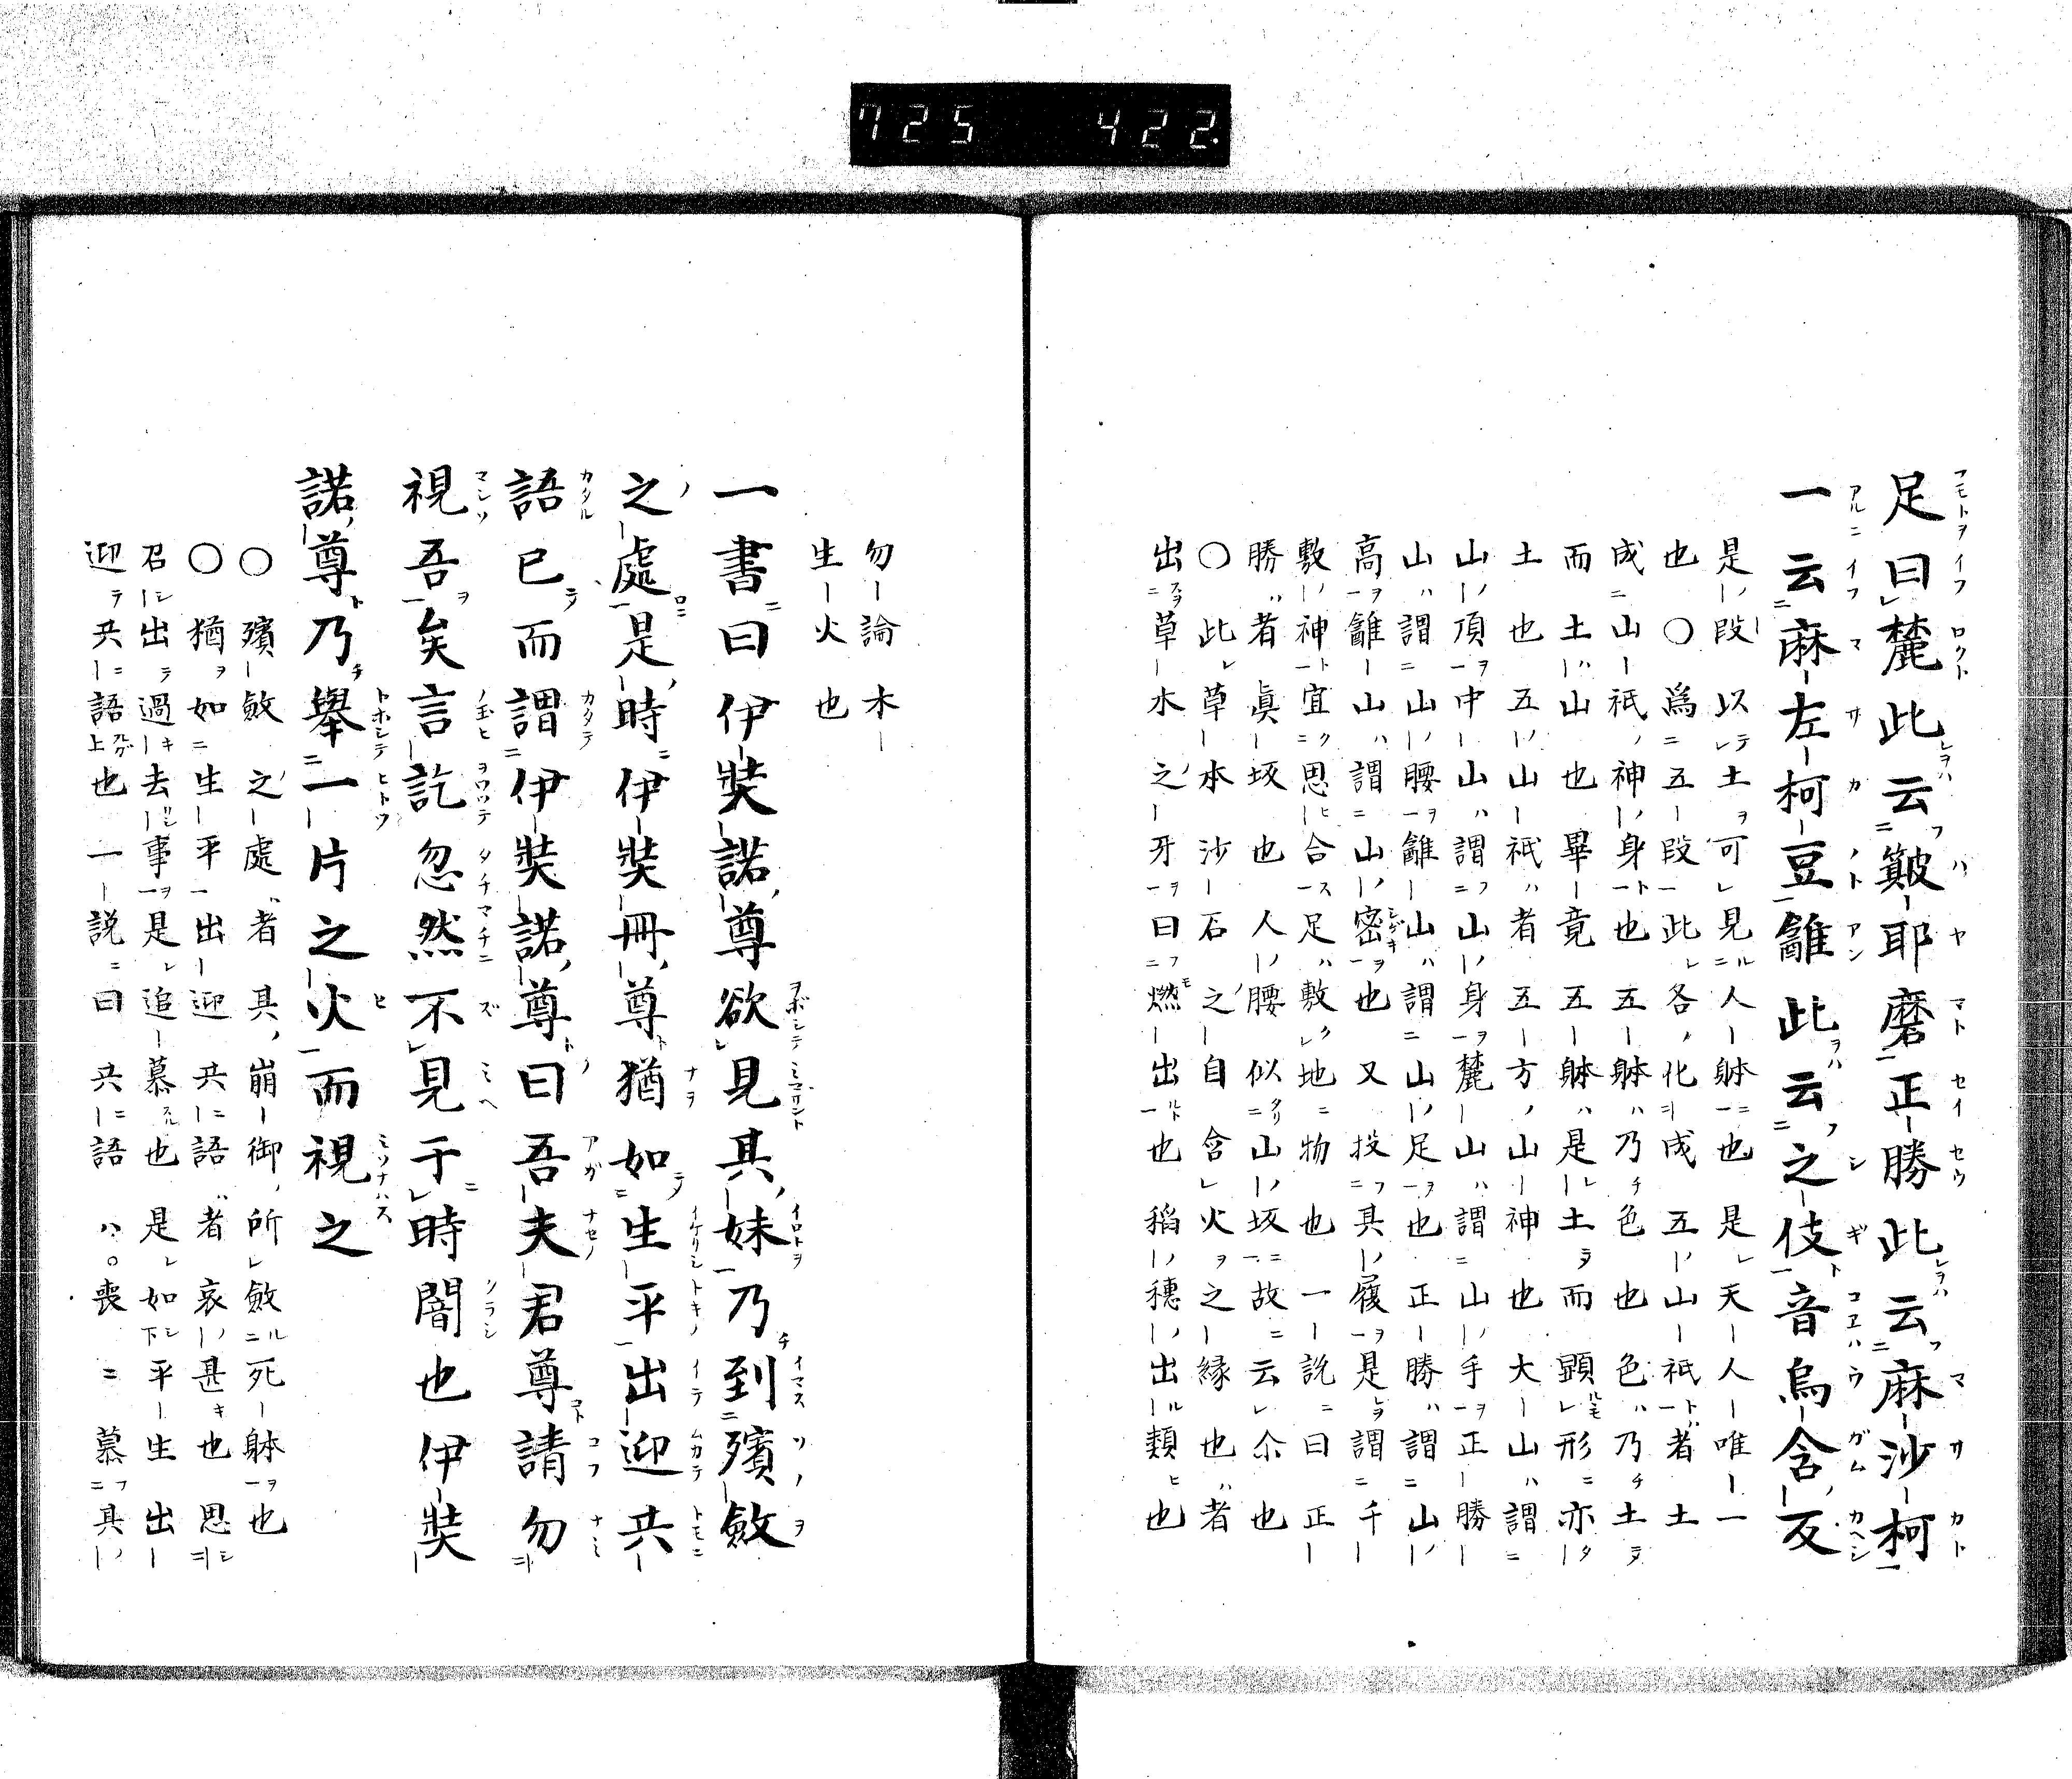 725 422
足曰麓此云簸耶磨正勝此云麻沙柯
一云麻左柯豆䧴此云之伎音烏含反
是段以土可見人躰也是天人唯一
也〇為五段此各化成五山祇者土
成山祇神身也五躰乃色也色乃土
而土山也畢竟五躰是土而顕形亦
土也五山祇者五方山神也大山謂
山頂中山謂山身麓山謂山手正勝
山謂山腰䧴山謂山足也正勝謂山
高䧴山謂山密也又投其履是謂千
敷神宜思合足敷地物也一説曰正
勝者眞坂也人腰似山坂故云尒也
〇此草木沙石之自含火之縁也者
出草木之牙曰燃出也稻穗出類也
勿論木
生火也
一書曰伊奘諾尊欲見其妹乃到殯斂
之處是時伊奘冊尊猶如生平出迎共
語已而謂伊奘諾尊曰吾夫君尊請勿
視吾矣言訖忽然不見于時闇也伊奘
諾尊乃舉一片之火而視之
〇殯斂之處者其崩御所斂死躰也
〇猶如生平出迎共語者哀甚也思
召出過去事是追慕也是如平生出
迎共語也一説曰共語ハ。喪ニ慕其